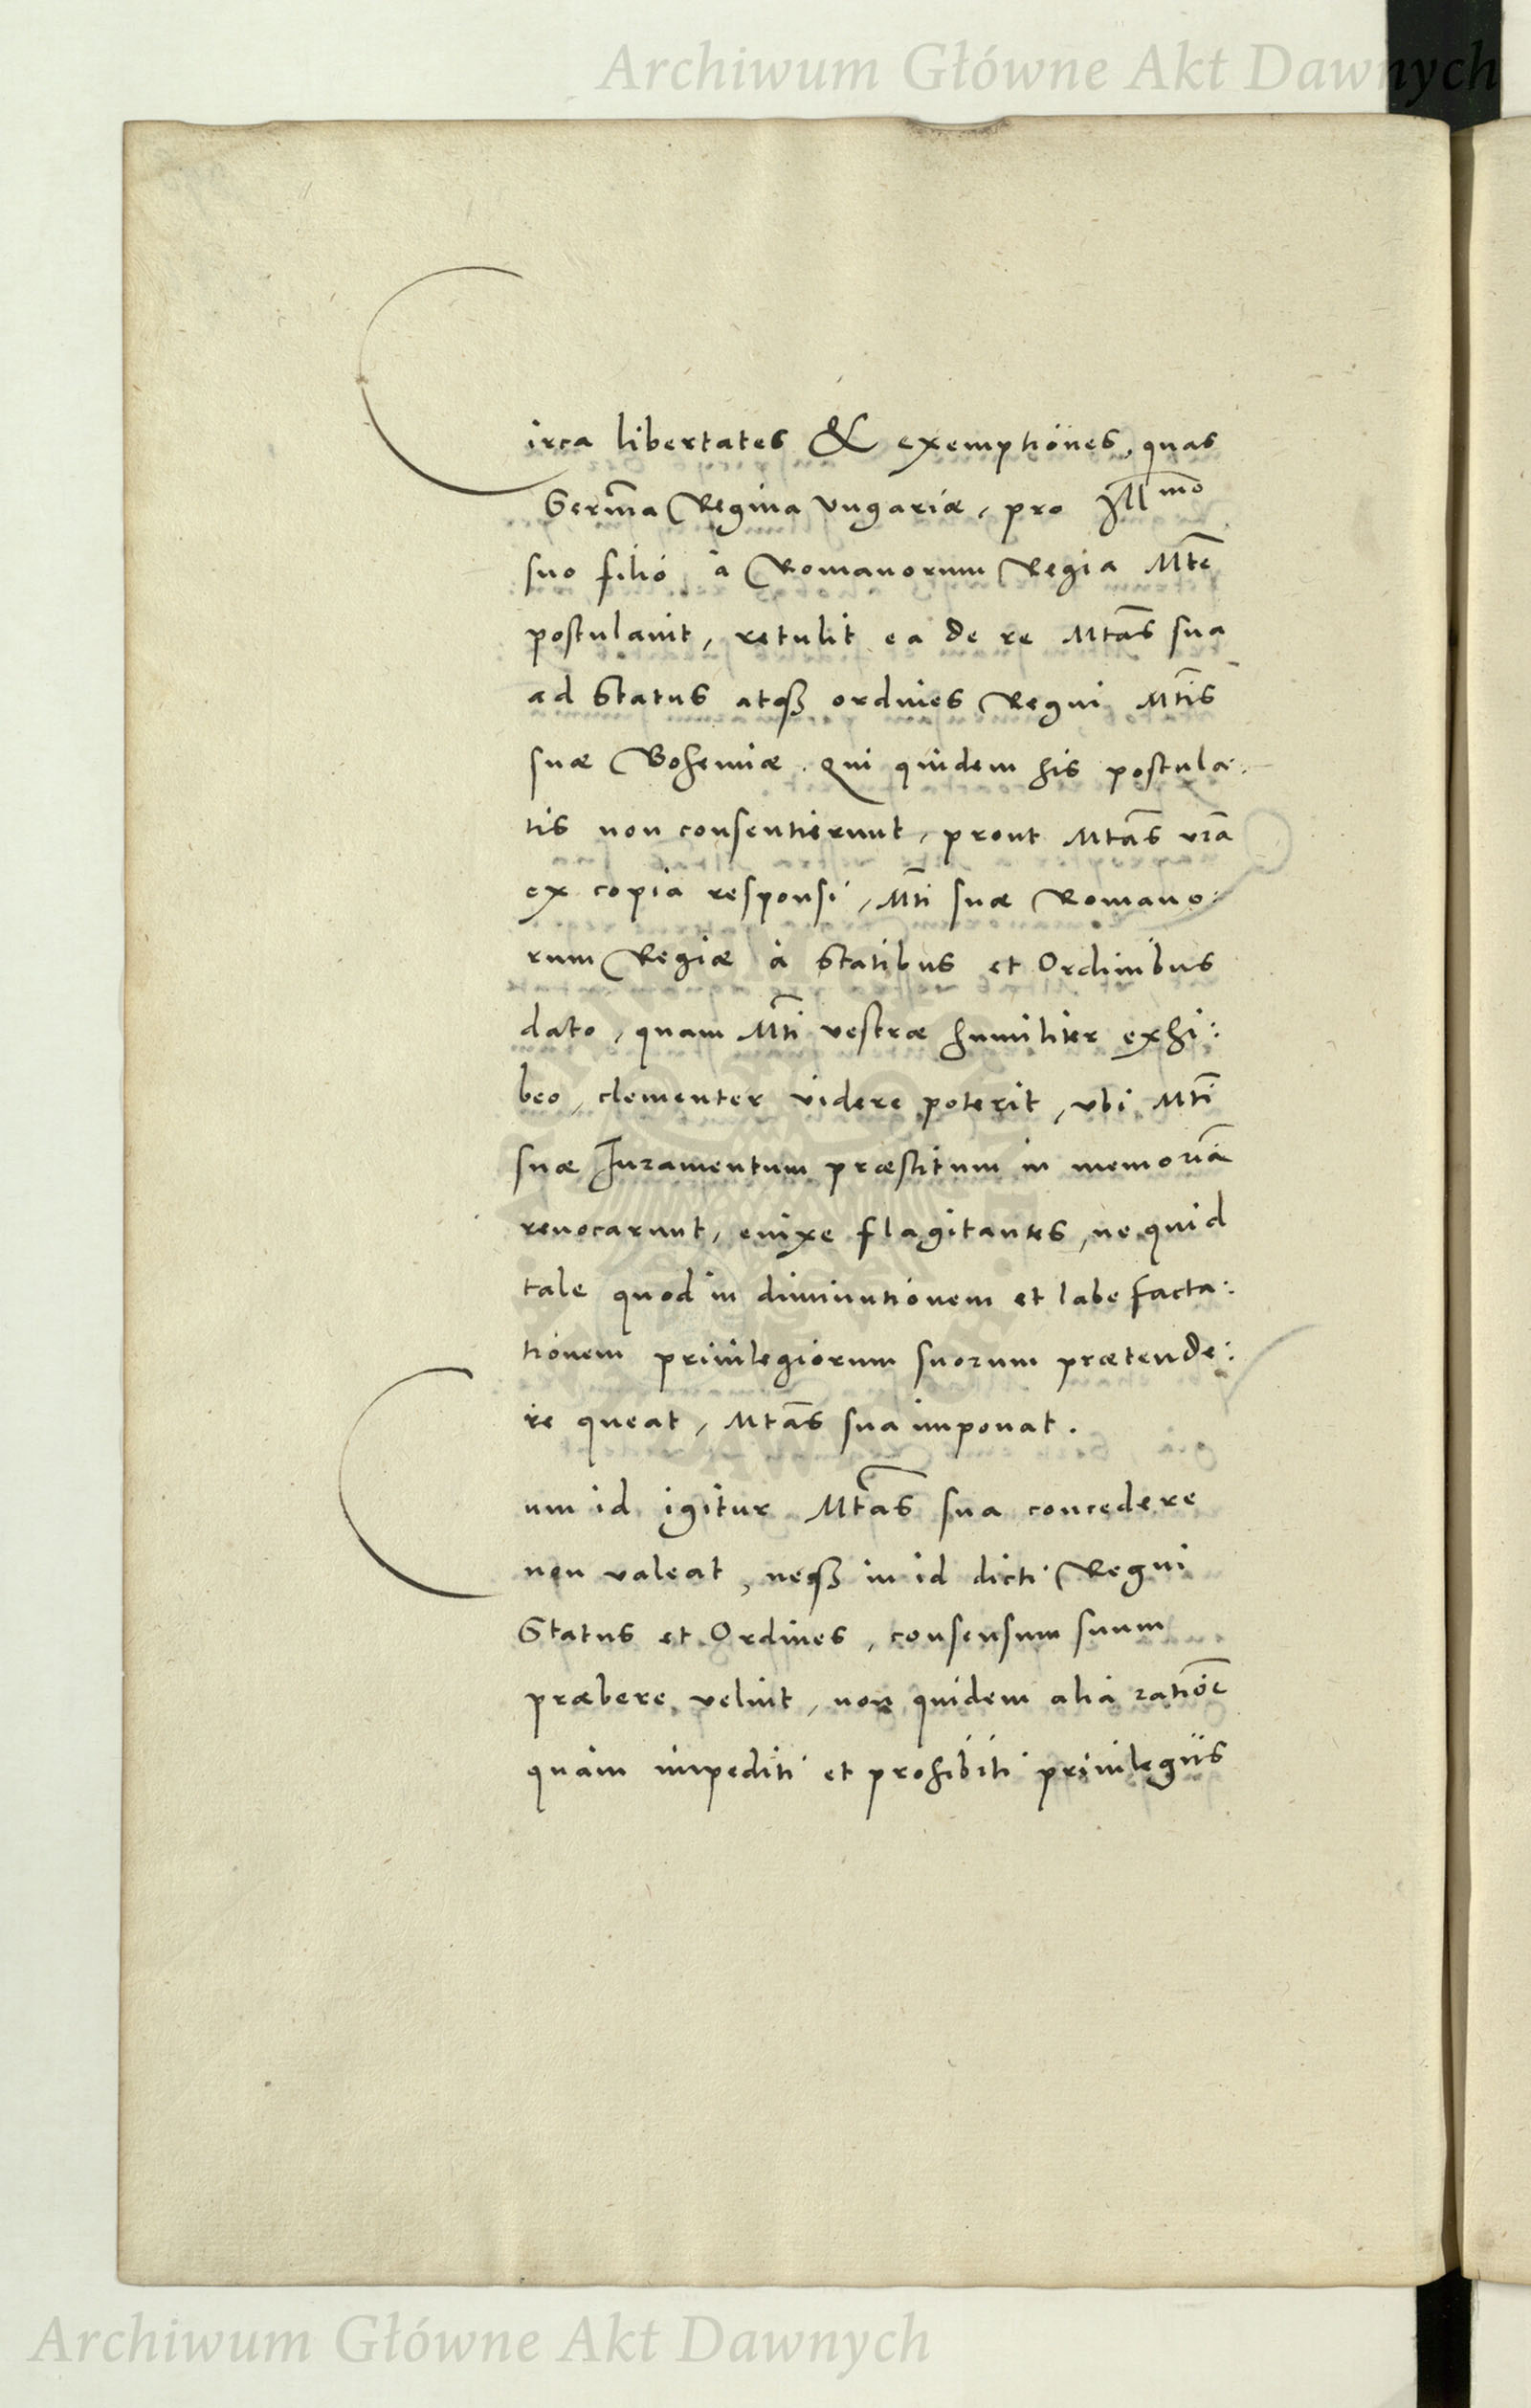 Archiwum Główne Akt Dawnych
Circa libertates & exemptiones, quas
Serm̃a Regina Vngariæ, pro Illmo
suo filio, à Romanorum Regia Mtẽ
postulauit, retulit ea de re Mtãs sua
ad Status atqȝ ordines Regni Mtĩs
suæ Bohemiæ. Qui quidem his postula:
tis non consentierunt, prout Mtãs vrã
ex copia responsi, Mtĩ suæ Romano:
rum Regiæ à Statibus et Ordinibus
dato, quam Mtĩ vestræ humiliter exhi:
beo, clementer videre poterit, vbi Mtĩ
suæ Iuramentum præstitum in memoriã
reuocarunt, enixe flagitantes, ne quid
tale quod in diminutionem et labefacta:
tionem priuilegiorum suorum prætende:
re queat, Mtãs sua imponat.
Cum id igitur Mtãs sua concedere
non valeat, neqȝ in id dicti Regni
Status et Ordines, consensum suum
præbere velint, non quidem alia ratiõe
quàm impediti et prohibiti priuilegiis
Archiwum Główne Akt Dawnych